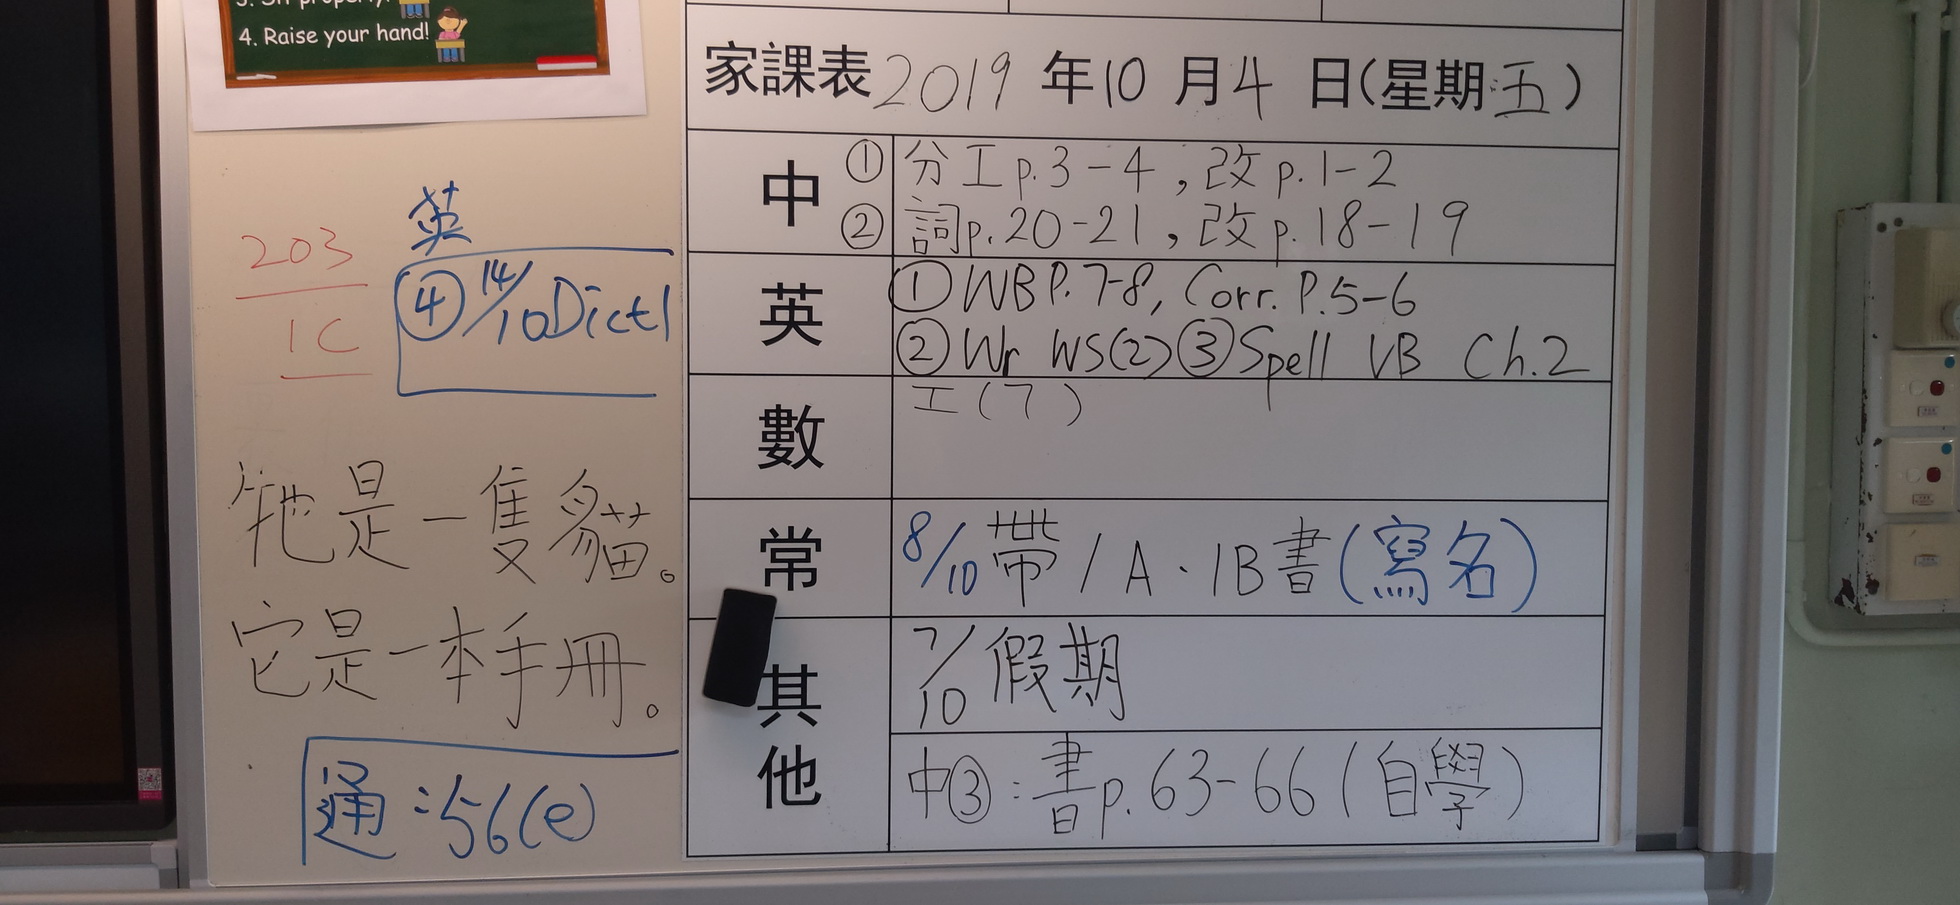 4. Raise your hand!
家課表 2019 年 10 月 4 日(星期五)
中
① 分工p.3-4,改p.1-2
② 詞p.20-21,改p.18-19
英
① WB P.7-8, Corr. P.5-6
② Wr WS(2) ③ Spell VB Ch.2
數
工(7)
常
8/10 帶 1A.1B書(寫名)
其他
7/10 假期
中③:書p.63-66(自學)
203
1C
英
④ 14/10 Dict1
牠是一隻貓。
它是一本手冊。
通:56(e)